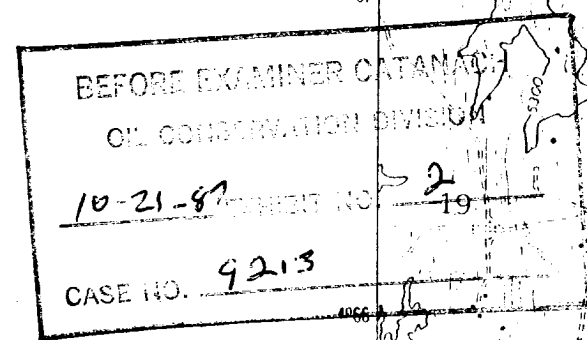 BEFORE EXAMINER CATANACH
OIL CONSERVATION DIVISION
10-21-87 EXHIBIT NO. 2
19
CASE NO. 9213
5300